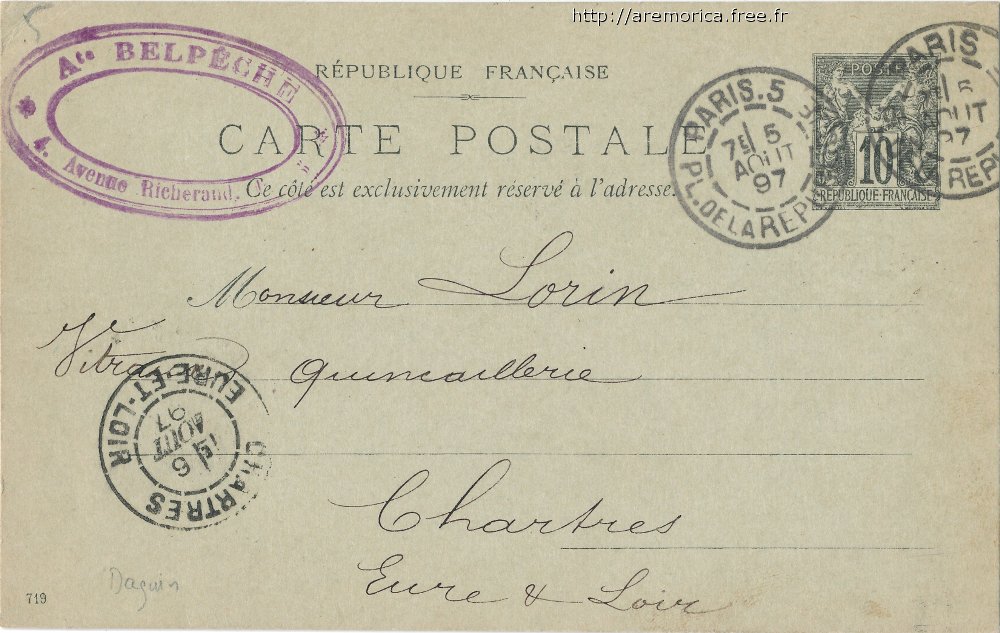 http://aremorica.free.fr
5
Ate BELPÊCHE
4, Avenue Richerand,
RÉPUBLIQUE FRANÇAISE
CARTE POSTALE
Ce côté est exclusivement réservé à l'adresse.
PARIS.5
5
AOUT
97
PL. DE LA REP
POSTES
10
RÉPUBLIQUE FRANÇAISE
PARIS
5
AOUT
97
REP
Monsieur Lorin
Quincaillerie
CHARTRES
EURE-ET-LOIR
6
AOUT
97
Chartres
Eure & Loir
Daguin
719